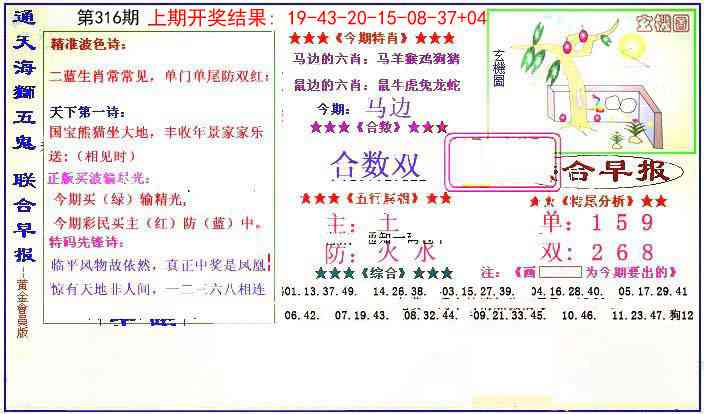 通天海狮五鬼 联合早报
--黄金會員版
第316期 上期开奖结果: 19-43-20-15-08-37+04
精准波色诗:
二蓝生肖常常见, 单门单尾防双红;
天下第一诗:
国宝熊猫坐大地, 丰收年景家家乐
送:(相见时)
正版买波输尽光:
今期买(绿)输精光,
今期彩民买主(红)防(蓝)中。
特码先锋诗:
临平风物故依然, 真正中奖是凤凰
惊有天地非人间, 一二三六八相连
★★★《今期特肖》★★★
马边的六肖: 马羊猴鸡狗猪
鼠边的六肖: 鼠牛虎兔龙蛇
今期: 马边
★★★《合数》★★★
合数双
★★★《五行属相》★★★
主: 土
防: 火 水
★★★《综合》★★★
玄機圖
玄機圖
合早报
★★《特尾分析》★★
单: 1 5 9
双: 2 6 8
注:《画 为今期要出的》
01.13.37.49. 14.26.38. 03.15.27.39. 04.16.28.40. 05.17.29.41
06.42. 07.19.43. 08.32.44. 09.21.33.45. 10.46. 11.23.47.狗12